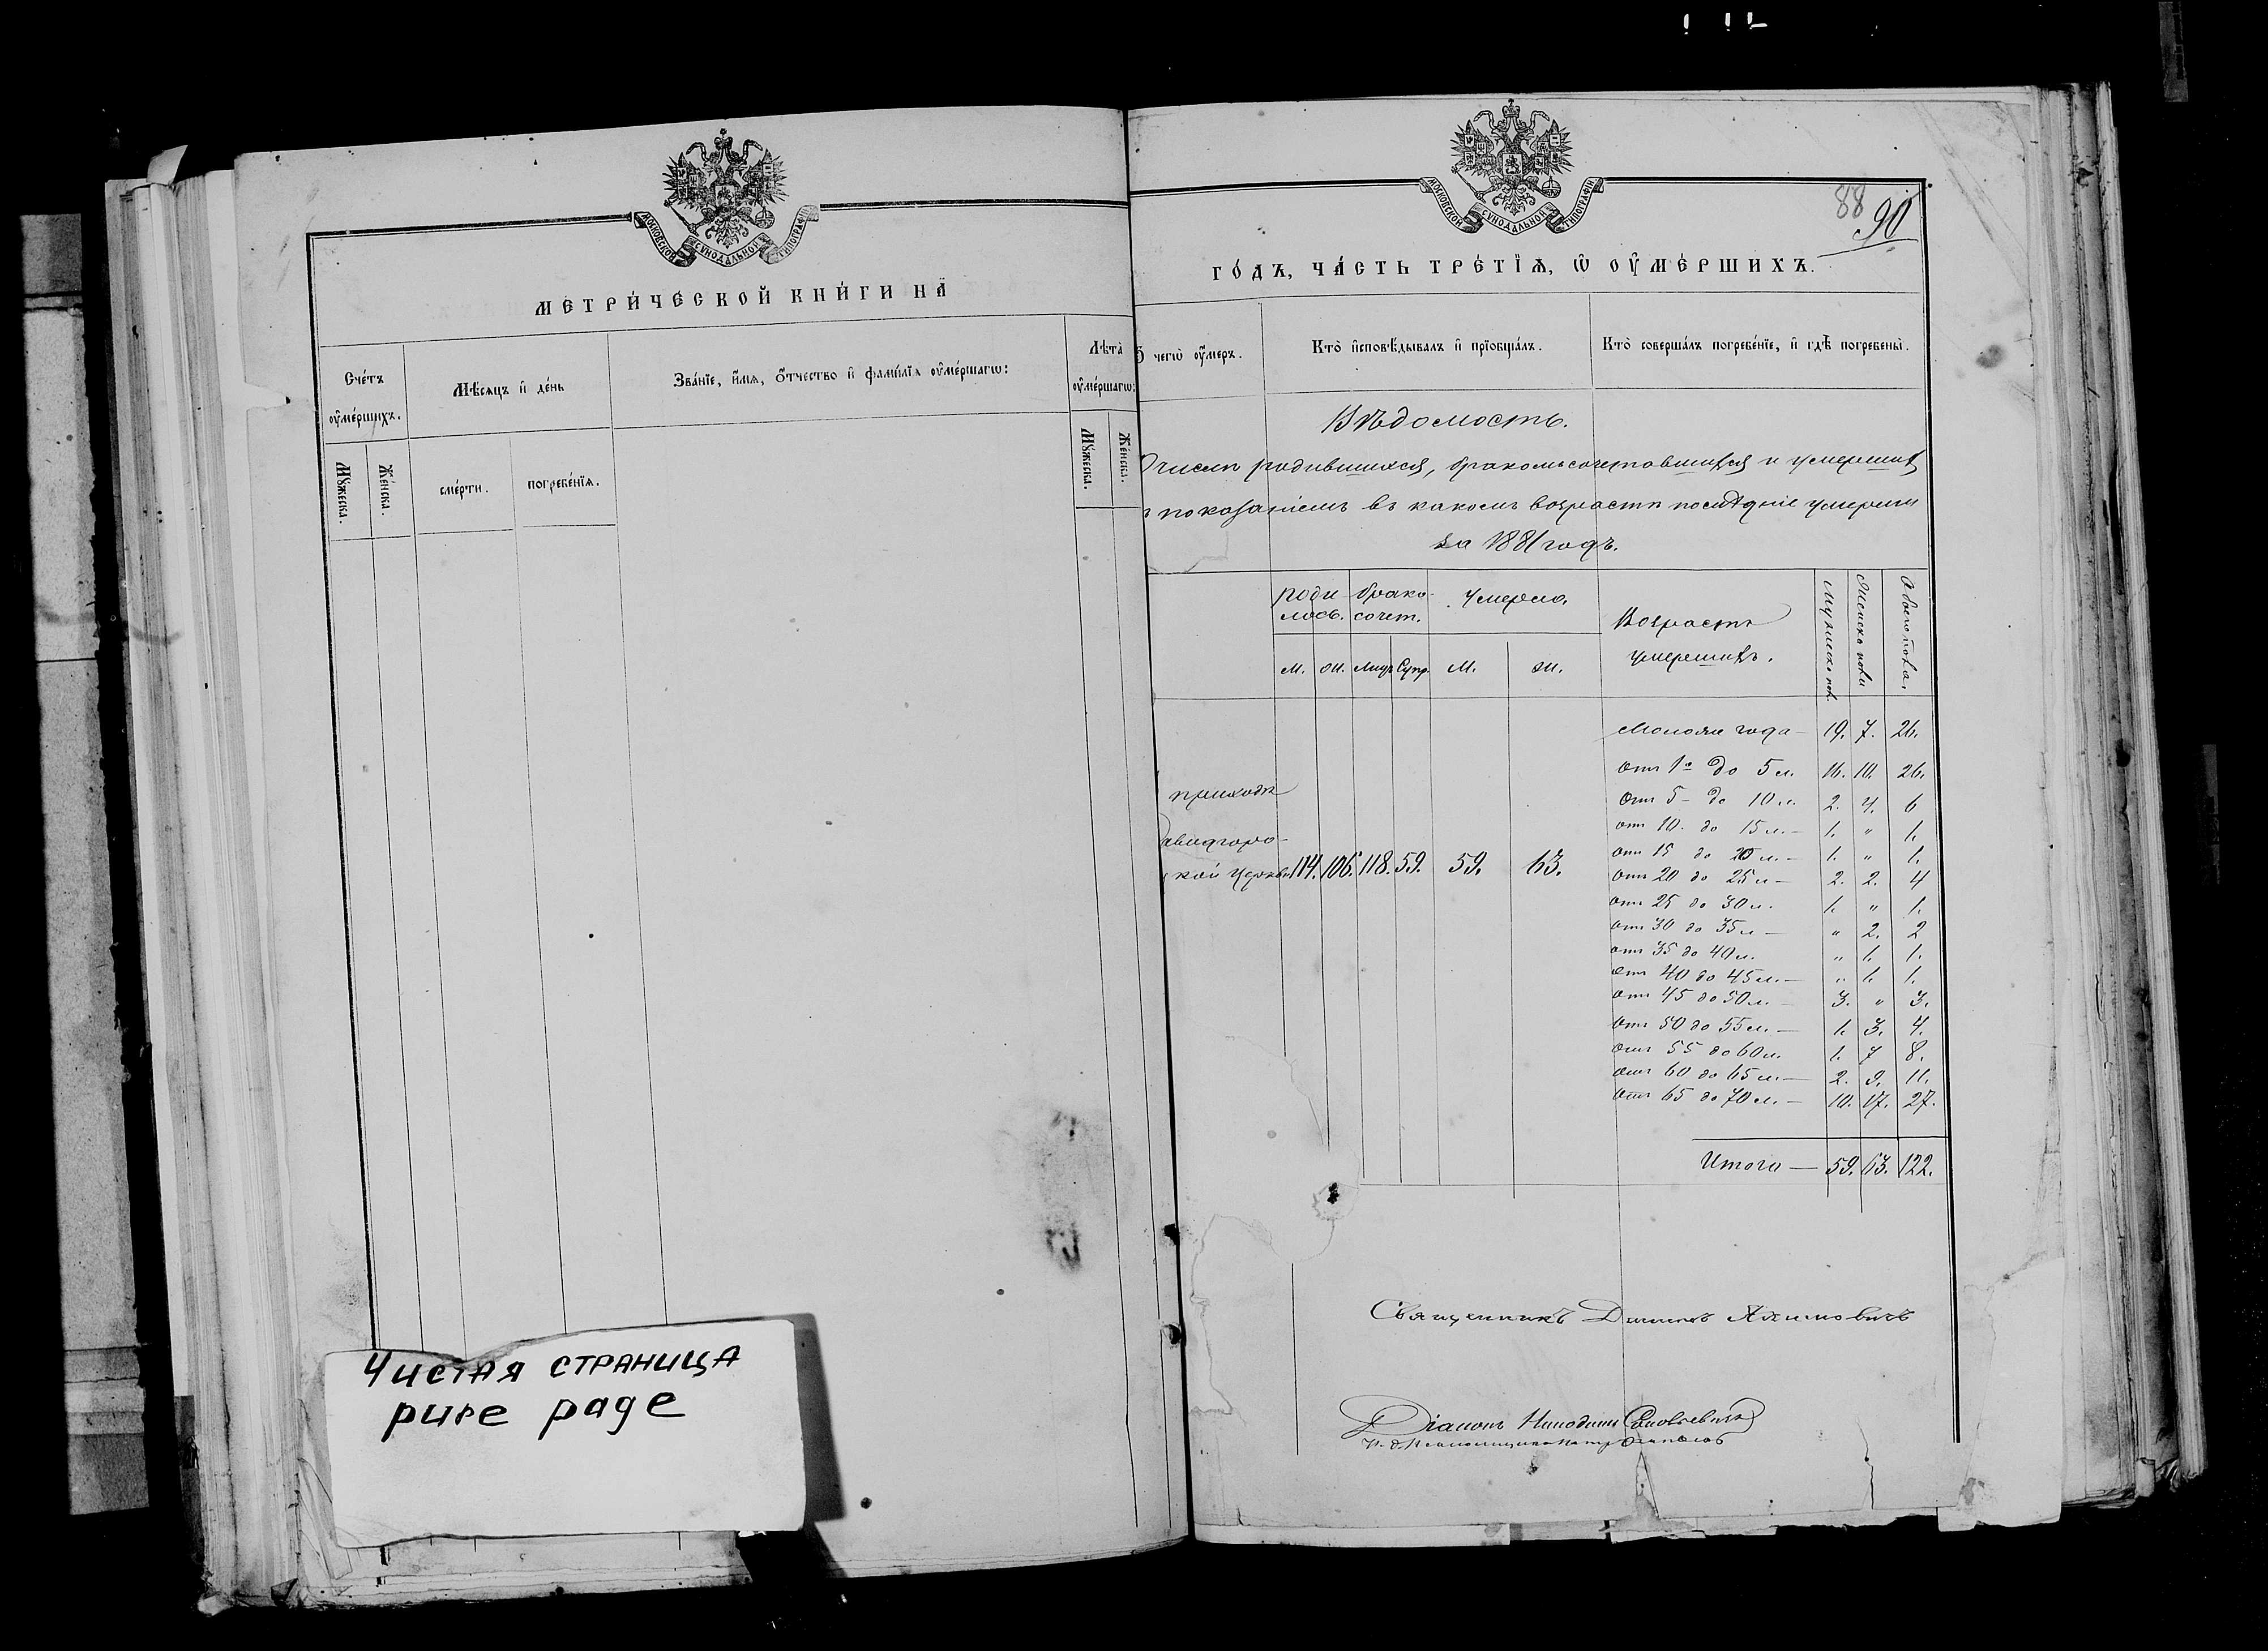 МОСКОВСКОЙ СѴНОДАЛЬНОЙ ТИПОГРАФІИ
МЕТРИ́ЧЕСКОЙ КНИ́ГИ НА̀
Сче́тъ
оу҆ме́ршихъ.
Мѣ́сяцъ и҆ де́нь
Зва́нїе, и҆́мя, ѻ҆́тчество и҆ фами́лїя оу҆ме́ршагѡ:
Лѣ́та
оу҆ме́ршагѡ:
Мꙋ́жеска.
Же́нска.
сме́рти.
погребе́нїя.
Мꙋ́жеска.
Же́нска.
Чистая страница
pure page
МОСКОВСКОЙ СѴНОДАЛЬНОЙ ТИПОГРАФІИ
88
90
ГО́ДЪ, ЧА́СТЬ ТРЕ́ТЇѦ, Ѡ҆ ОУ҆МЕ́РШИХЪ.
чегѡ̀ оу҆́меръ.
Кто̀ и҆сповѣ́дывалъ и҆ прїобща́лъ.
Кто̀ соверша́лъ погребе́нїе, и҆ гдѣ̀ погребены̀.
Вѣдомость.
О числѣ родившихся, бракомъ сочетавшихся и умершихъ
показаніемъ въ какомъ возрастѣ послѣдніе умерли
за 1881 годъ.
роди
лось.
брако-
сочет.
Умерло.
Возрастъ
умершихъ.
Мужеска пол.
Женска пола
Обоего пола.
м. ж. Лицъ Супр. м. ж.
Моложе года — 19. 7. 26.
Отъ 1го до 5 л. 16. 10. 26.
приходѣ
Отъ 5 - до 10 л. 2. 4. 6
отъ 10. до 15 л. — 1. " 1.
отъ 15 до 20 л. — 1. " 1.
кой церкви 114. 106. 118. 59. 59. 63.
отъ 20 до 25 л — 2. 2. 4
отъ 25 до 30 л. 1. " 1.
отъ 30 до 35 л — " 2. 2
отъ 35 до 40 л. " 1. 1.
отъ 40 до 45 л. — " 1. 1.
отъ 45 до 50 л. — 3. " 3.
отъ 50 до 55 л. — 1. 3. 4.
отъ 55 до 60 л. 1. 7 8.
отъ 60 до 65 л. — 2. 9. 11.
отъ 65 до 70 л. — 10. 17. 27.
Итого — 59. 63. 122.
Священникъ
Діаконъ Никодимъ